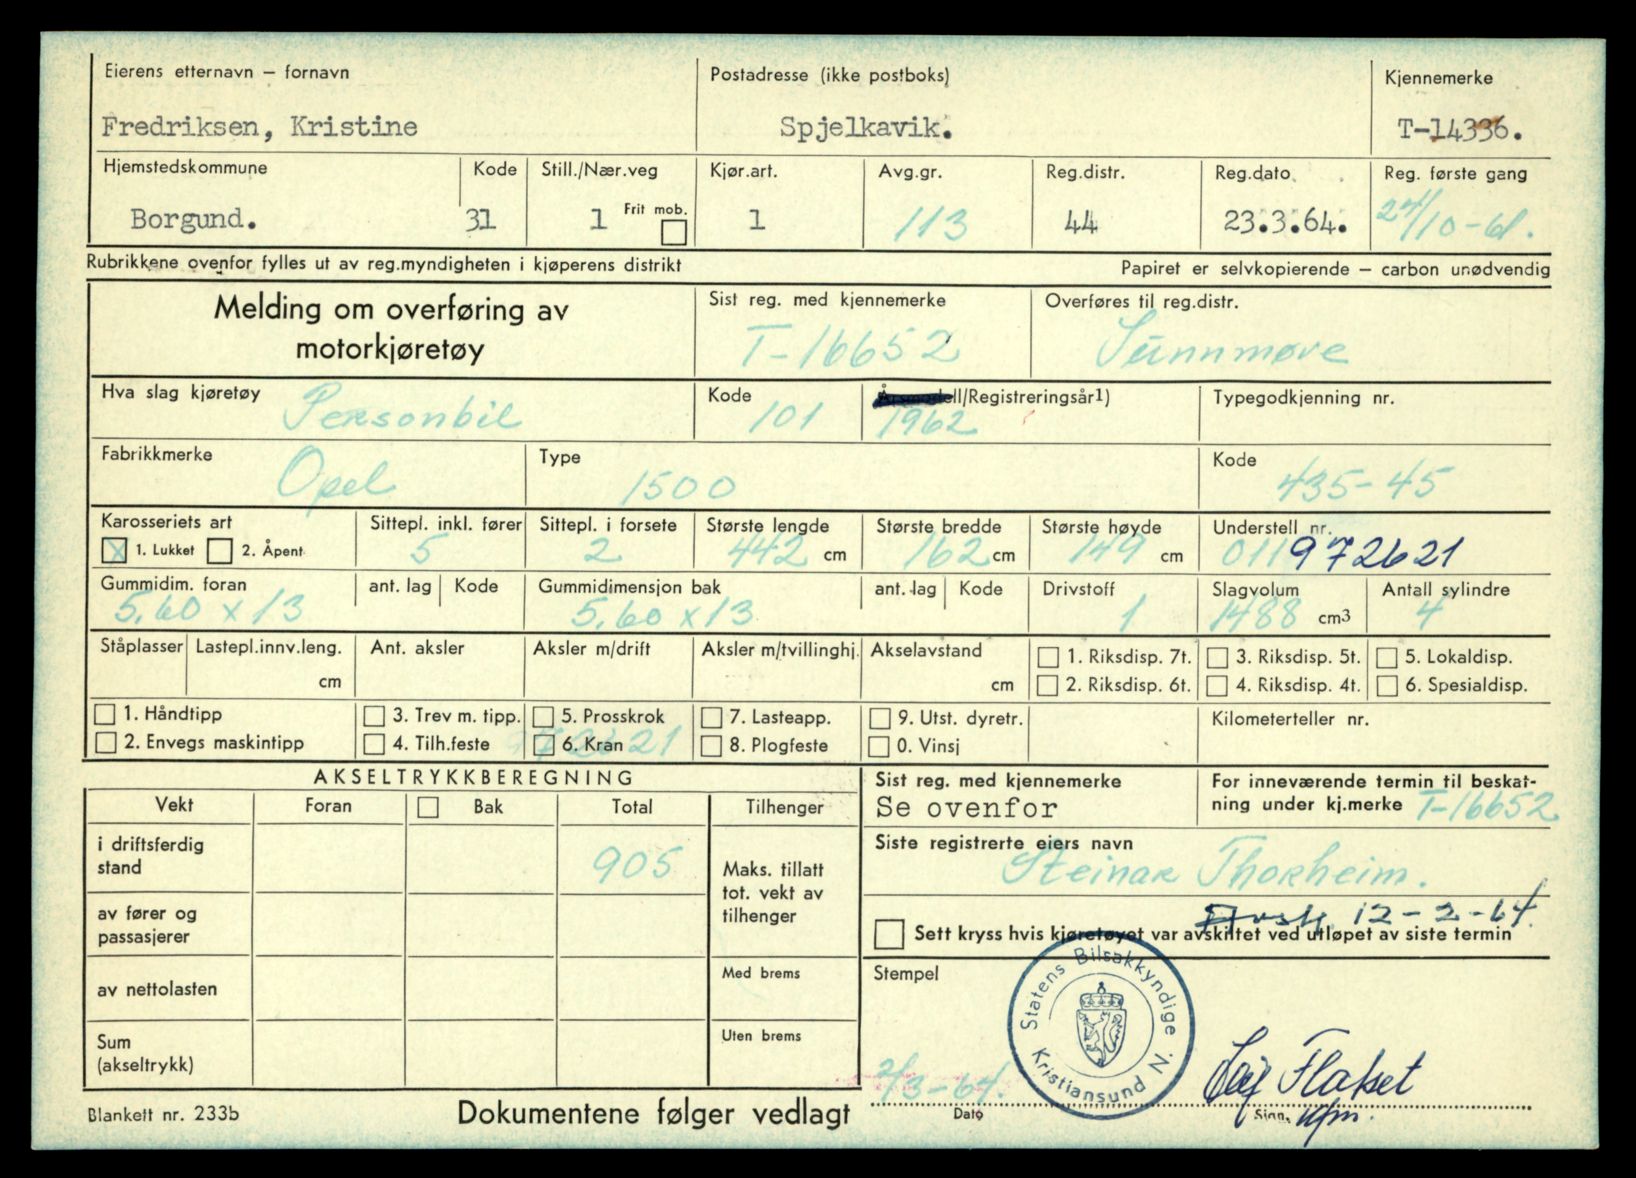 Eierens etternavn – fornavn Postadresse (ikke postboks) Kjennemerke
Fredriksen, Kristine Spjelkavik. T-14336.
Hjemstedskommune Kode Still./Nær.veg Kjør.art. Avg.gr. Reg.distr. Reg.dato Reg. første gang
Borgund. 31 1 Frit mob. 1 113 44 23.3.64. 24/10-61.
Rubrikkene ovenfor fylles ut av reg.myndigheten i kjøperens distrikt Papiret er selvkopierende – carbon unødvendig
Melding om overføring av Sist reg. med kjennemerke Overføres til reg.distr.
motorkjøretøy T-16652 Sunnmøre
Hva slag kjøretøy Kode /Registreringsår1) Typegodkjenning nr.
Personbil 101 1962
Fabrikkmerke Type Kode
Opel 1500 435-45
Karosseriets art Sittepl. inkl. fører Sittepl. i forsete Største lengde Største bredde Største høyde Understell nr.
X 1. Lukket 2. Åpent 5 2 442 cm 162 cm 149 cm 011972621
Gummidim. foran ant. lag Kode Gummidimensjon bak ant. lag Kode Drivstoff Slagvolum Antall sylindre
5.60 x 13 5.60 x 13 1 1488 cm3 4
Ståplasser Lastepl.innv.leng. Ant. aksler Aksler m/drift Aksler m/tvillinghj. Akselavstand 1. Riksdisp. 7t. 3. Riksdisp. 5t. 5. Lokaldisp.
cm cm 2. Riksdisp. 6t. 4. Riksdisp. 4t. 6. Spesialdisp.
1. Håndtipp 3. Trev m. tipp. 5. Prosskrok 7. Lasteapp. 9. Utst. dyretr. Kilometerteller nr.
2. Envegs maskintipp 4. Tilh.feste 6. Kran 8. Plogfeste 0. Vinsj
972621
AKSELTRYKKBEREGNING Sist reg. med kjennemerke For inneværende termin til beskat-
Vekt Foran Bak Total Tilhenger Se ovenfor ning under kj.merke T-16652
i driftsferdig Siste registrerte eiers navn
stand 905 Maks. tillatt Steinar Thorheim.
tot. vekt av
av fører og tilhenger 12-2-64.
passasjerer Sett kryss hvis kjøretøyet var avskiltet ved utløpet av siste termin
av nettolasten Med brems Stempel
Statens Bilsakkyndige
Kristiansund N.
Sum Uten brems
(akseltrykk) 2/3-64. Leif Flakset
Blankett nr. 233b Dokumentene følger vedlagt Dato Sign.